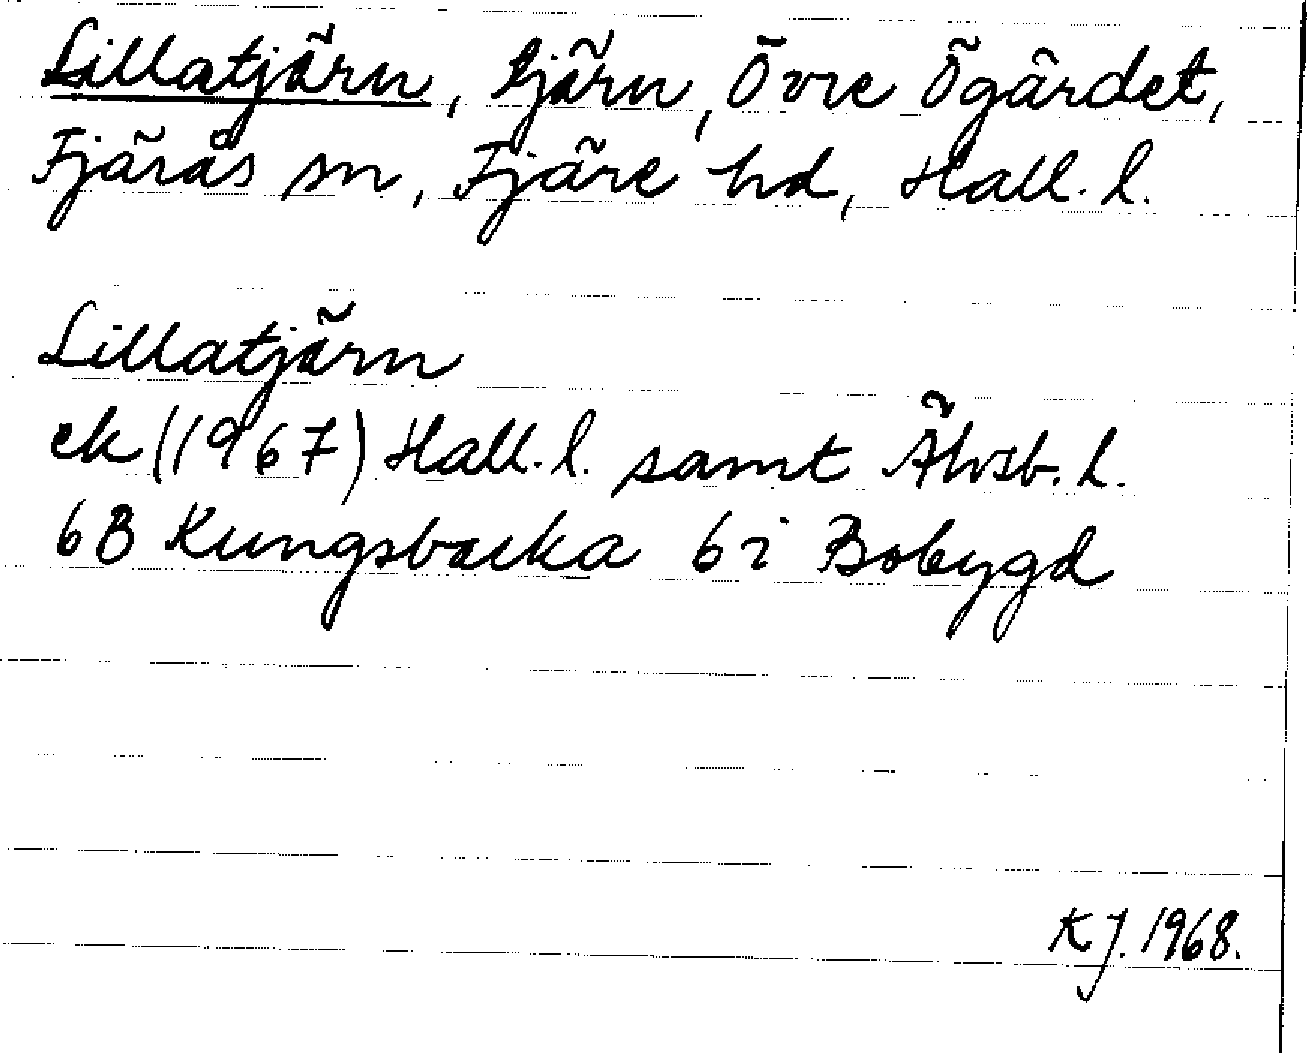 Lillatjärn, tjärn, Övre Ögärdet,
Fjärås sn, Fjäre hd, Hall. l.
Lillatjärn
ek (1967) Hall. l. samt Älvsb. l.
6B Kungsbacka 6i Bobygd
KJ. 1968.